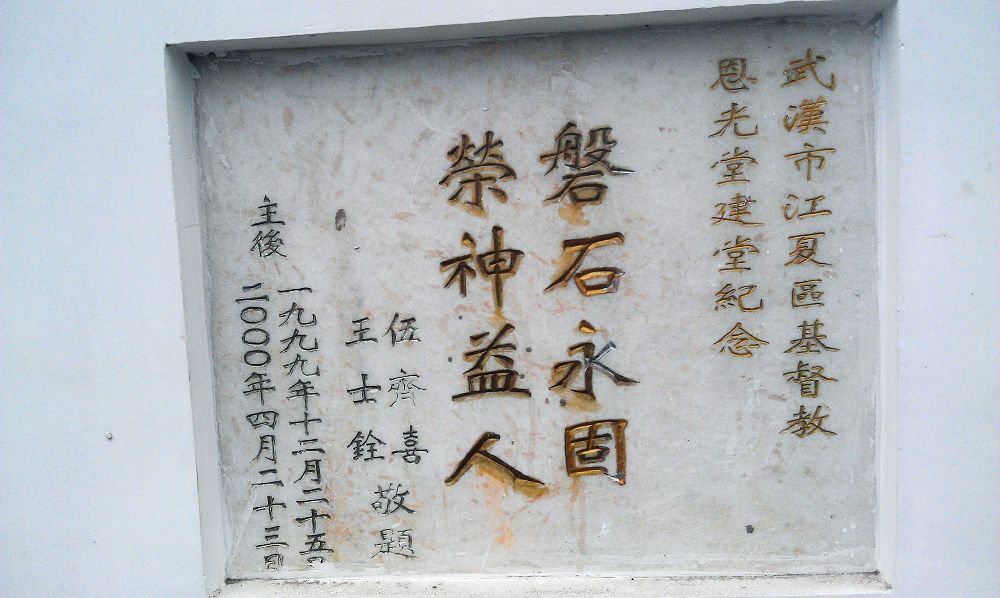 武漢市江夏區基督教
恩光堂建堂紀念
磐石永固
榮神益人
伍齊喜
王士銓
敬題
主後
一九九九年十二月二十五日
二〇〇〇年四月二十三日